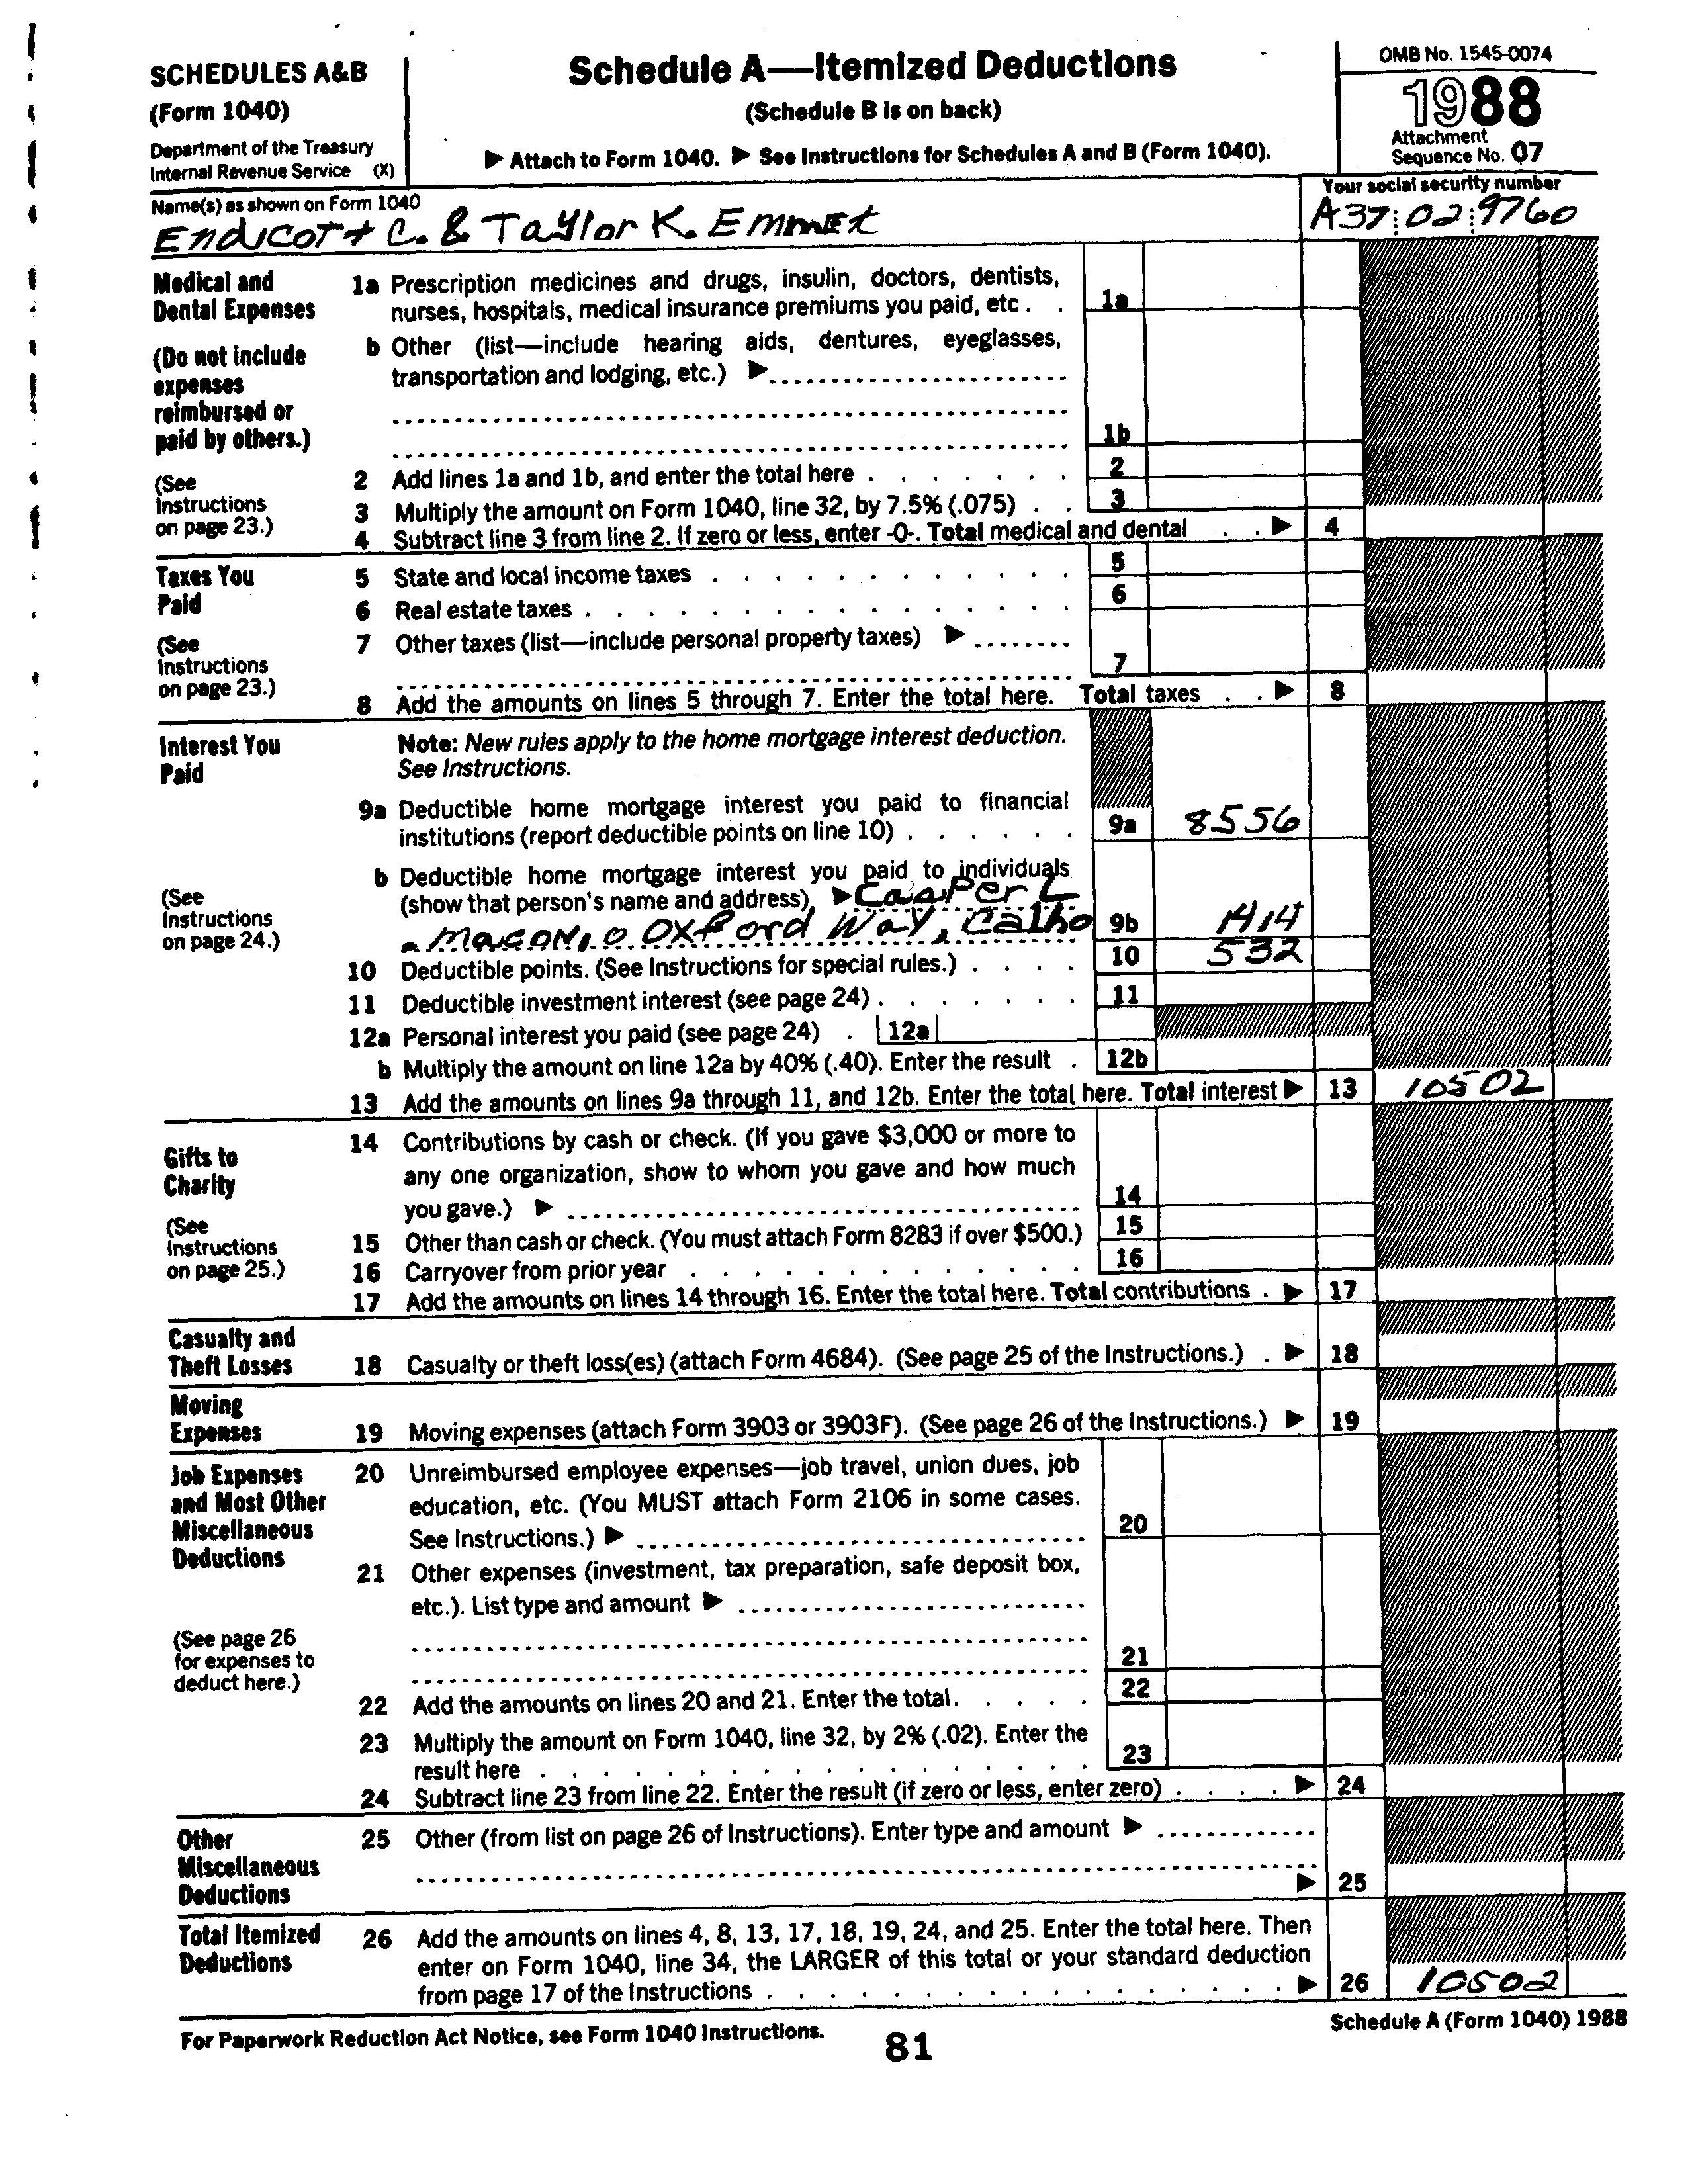 SCHEDULES A&B
(Form 1040)
Department of the Treasury
Internal Revenue Service (X)
Schedule A—Itemized Deductions
(Schedule B is on back)
▶ Attach to Form 1040. ▶ See Instructions for Schedules A and B (Form 1040).
OMB No. 1545-0074
1988
Attachment
Sequence No. 07
Name(s) as shown on Form 1040
Endicott C. & Taylor K. Emmet
Your social security number
A37 02 9760
Medical and
Dental Expenses
(Do not include
expenses
reimbursed or
paid by others.)
(See
Instructions
on page 23.)
1a Prescription medicines and drugs, insulin, doctors, dentists,
nurses, hospitals, medical insurance premiums you paid, etc . . 1a
b Other (list—include hearing aids, dentures, eyeglasses,
transportation and lodging, etc.) ▶
1b
2 Add lines 1a and 1b, and enter the total here . . . . . . . 2
3 Multiply the amount on Form 1040, line 32, by 7.5% (.075) . . 3
4 Subtract line 3 from line 2. If zero or less, enter -0-. Total medical and dental . . ▶ 4
Taxes You
Paid
(See
Instructions
on page 23.)
5 State and local income taxes . . . . . . . . . . . . 5
6 Real estate taxes . . . . . . . . . . . . . . . 6
7 Other taxes (list—include personal property taxes) ▶
7
8 Add the amounts on lines 5 through 7. Enter the total here. Total taxes . . ▶ 8
Interest You
Paid
(See
Instructions
on page 24.)
Note: New rules apply to the home mortgage interest deduction.
See Instructions.
9a Deductible home mortgage interest you paid to financial
institutions (report deductible points on line 10) . . . . . . 9a 8556
b Deductible home mortgage interest you paid to individuals
(show that person's name and address) ▶ Casper L
Macon, 0 Oxford Way, Calho 9b 1414
10 Deductible points. (See Instructions for special rules.) . . . . 10 532
11 Deductible investment interest (see page 24) . . . . . . . 11
12a Personal interest you paid (see page 24) . 12a
b Multiply the amount on line 12a by 40% (.40). Enter the result . 12b
13 Add the amounts on lines 9a through 11, and 12b. Enter the total here. Total interest ▶ 13 10502
Gifts to
Charity
(See
Instructions
on page 25.)
14 Contributions by cash or check. (If you gave $3,000 or more to
any one organization, show to whom you gave and how much
you gave.) ▶ 14
15 Other than cash or check. (You must attach Form 8283 if over $500.) 15
16 Carryover from prior year . . . . . . . . . . . . . 16
17 Add the amounts on lines 14 through 16. Enter the total here. Total contributions . ▶ 17
Casualty and
Theft Losses
18 Casualty or theft loss(es) (attach Form 4684). (See page 25 of the Instructions.) . ▶ 18
Moving
Expenses
19 Moving expenses (attach Form 3903 or 3903F). (See page 26 of the Instructions.) ▶ 19
Job Expenses
and Most Other
Miscellaneous
Deductions
(See page 26
for expenses to
deduct here.)
20 Unreimbursed employee expenses—job travel, union dues, job
education, etc. (You MUST attach Form 2106 in some cases.
See Instructions.) ▶ 20
21 Other expenses (investment, tax preparation, safe deposit box,
etc.). List type and amount ▶
21
22 Add the amounts on lines 20 and 21. Enter the total. . . . . 22
23 Multiply the amount on Form 1040, line 32, by 2% (.02). Enter the
result here . . . . . . . . . . . . . . . . 23
24 Subtract line 23 from line 22. Enter the result (if zero or less, enter zero) . . . . ▶ 24
Other
Miscellaneous
Deductions
25 Other (from list on page 26 of Instructions). Enter type and amount ▶
▶ 25
Total Itemized
Deductions
26 Add the amounts on lines 4, 8, 13, 17, 18, 19, 24, and 25. Enter the total here. Then
enter on Form 1040, line 34, the LARGER of this total or your standard deduction
from page 17 of the Instructions . . . . . . . . . . . . . . . ▶ 26 10502
For Paperwork Reduction Act Notice, see Form 1040 Instructions.
81
Schedule A (Form 1040) 1988